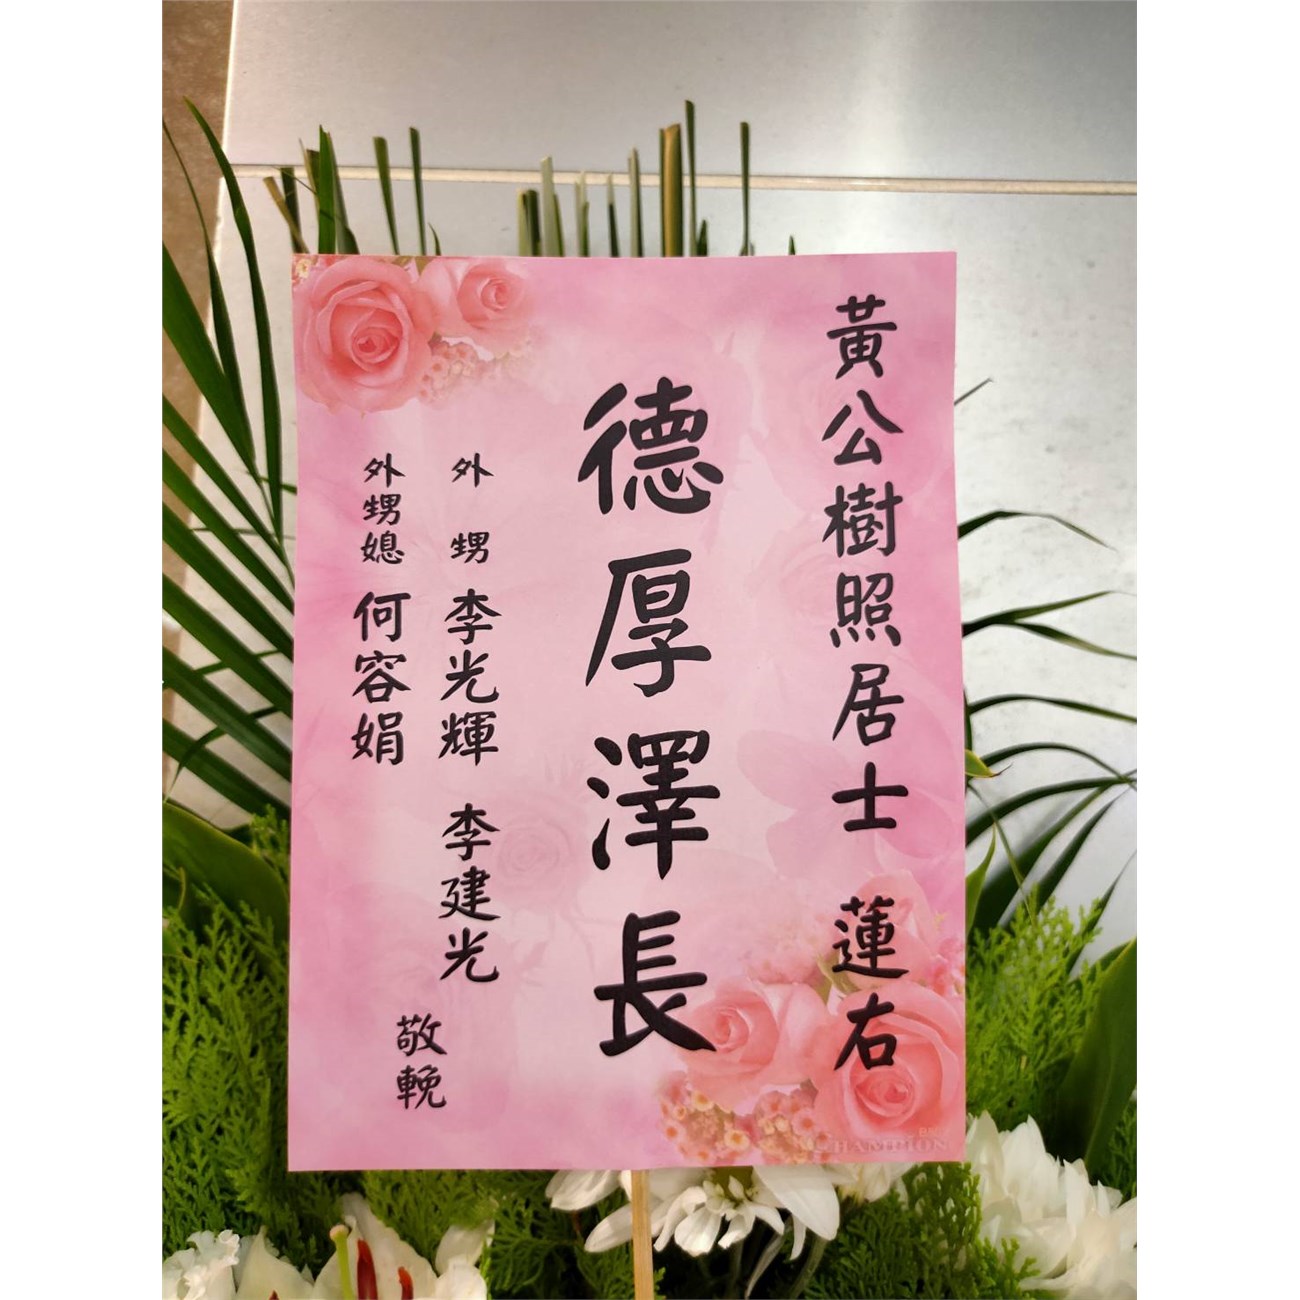 黃公樹照居士 蓮右
德厚澤長
外甥 李光輝 李建光
外甥媳 何容娟
敬輓